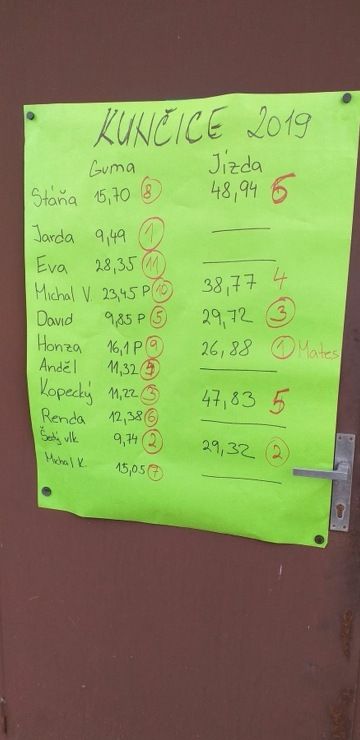 KUNČICE 2019
Guma Jízda
Stáňa 15,70 8 48,94 6
Jarda 9,49 1
Eva 28,35 11
Michal V. 23,45 P 10 38,77 4
David 9,85 P 5 29,72 3
Honza 16,1 P 9 26,88 1 Mates
Anděl 11,32
Kopecký 11,22 3 47,83 5
Renda 12,38 6
Šedý vlk 9,74 2 29,32 2
Michal K. 15,05 7